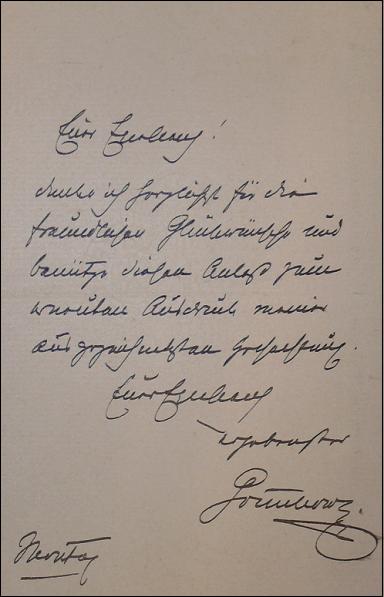 Euer Excellenz!
danke ich herzlichst für die
freundlichen Glückwünsche und
benütze diesen Anlaß zum
erneuten Ausdruck meiner
ausgezeichnetsten Hochachtung.
Euer Excellenz
ergebenster
Montag